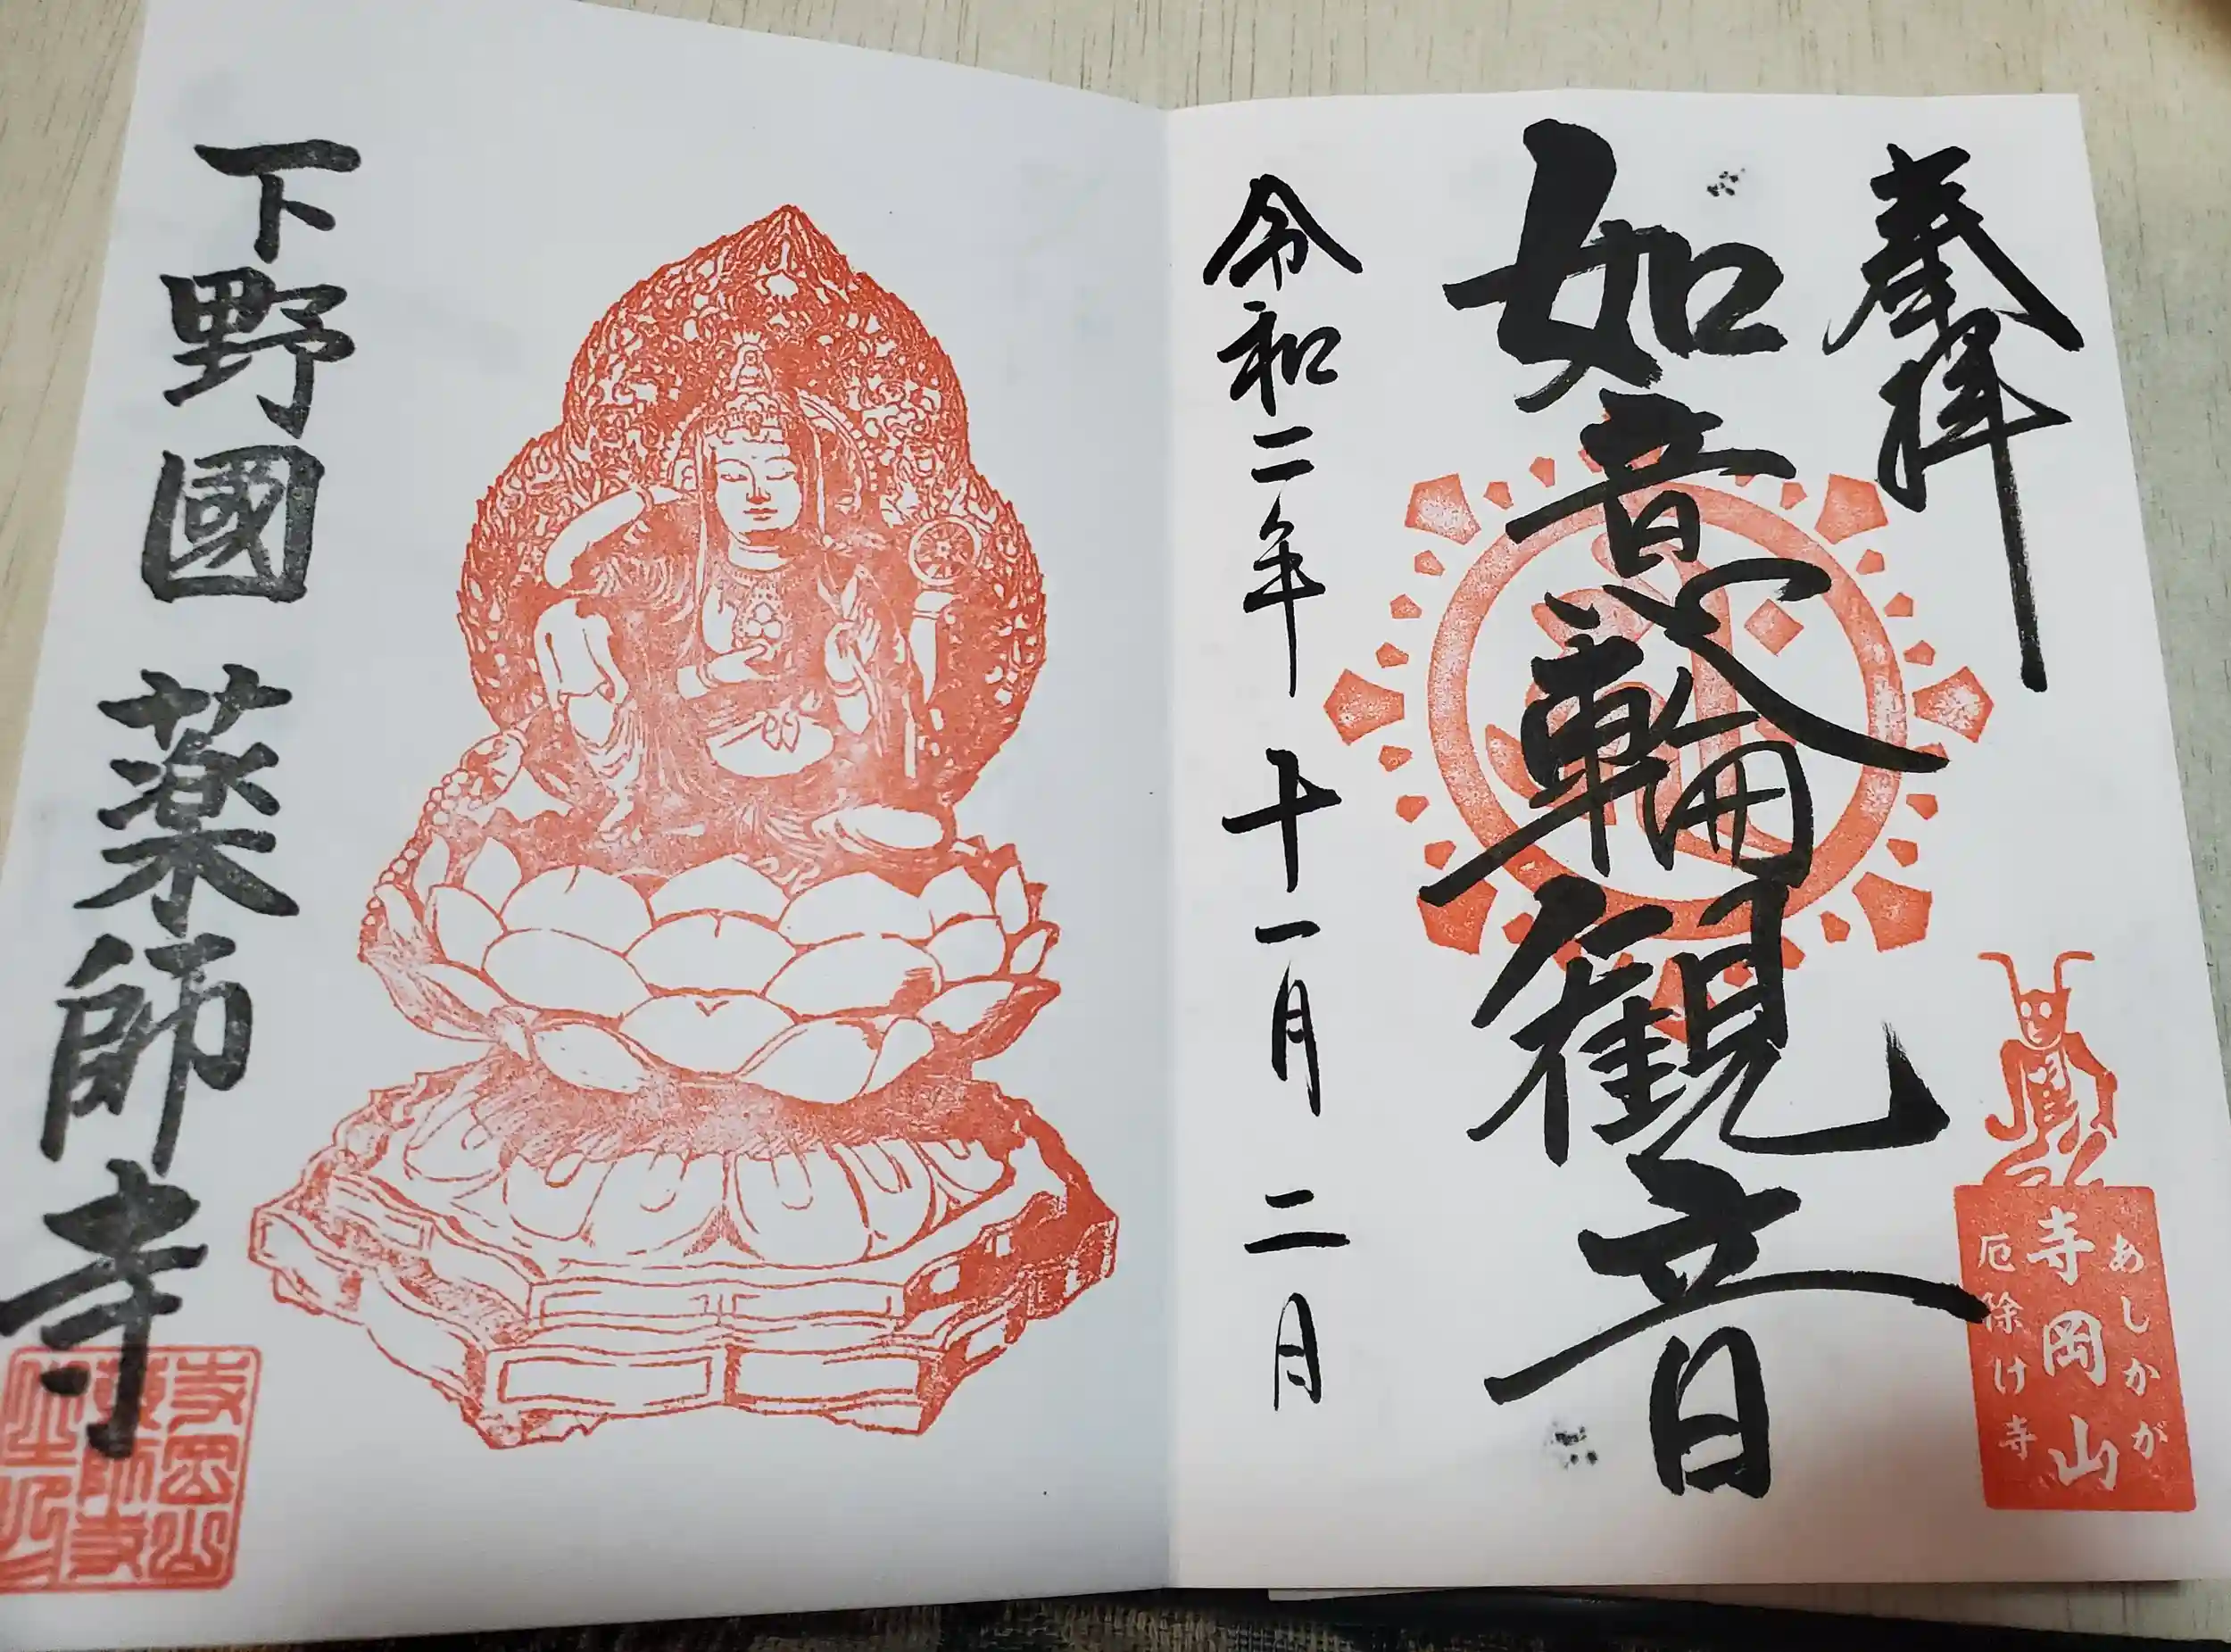 奉拝
あしかが
寺岡山
厄除け寺
如意輪観音
令和二年 十一月 二日
下野國 薬師寺
寺岡山
薬師寺